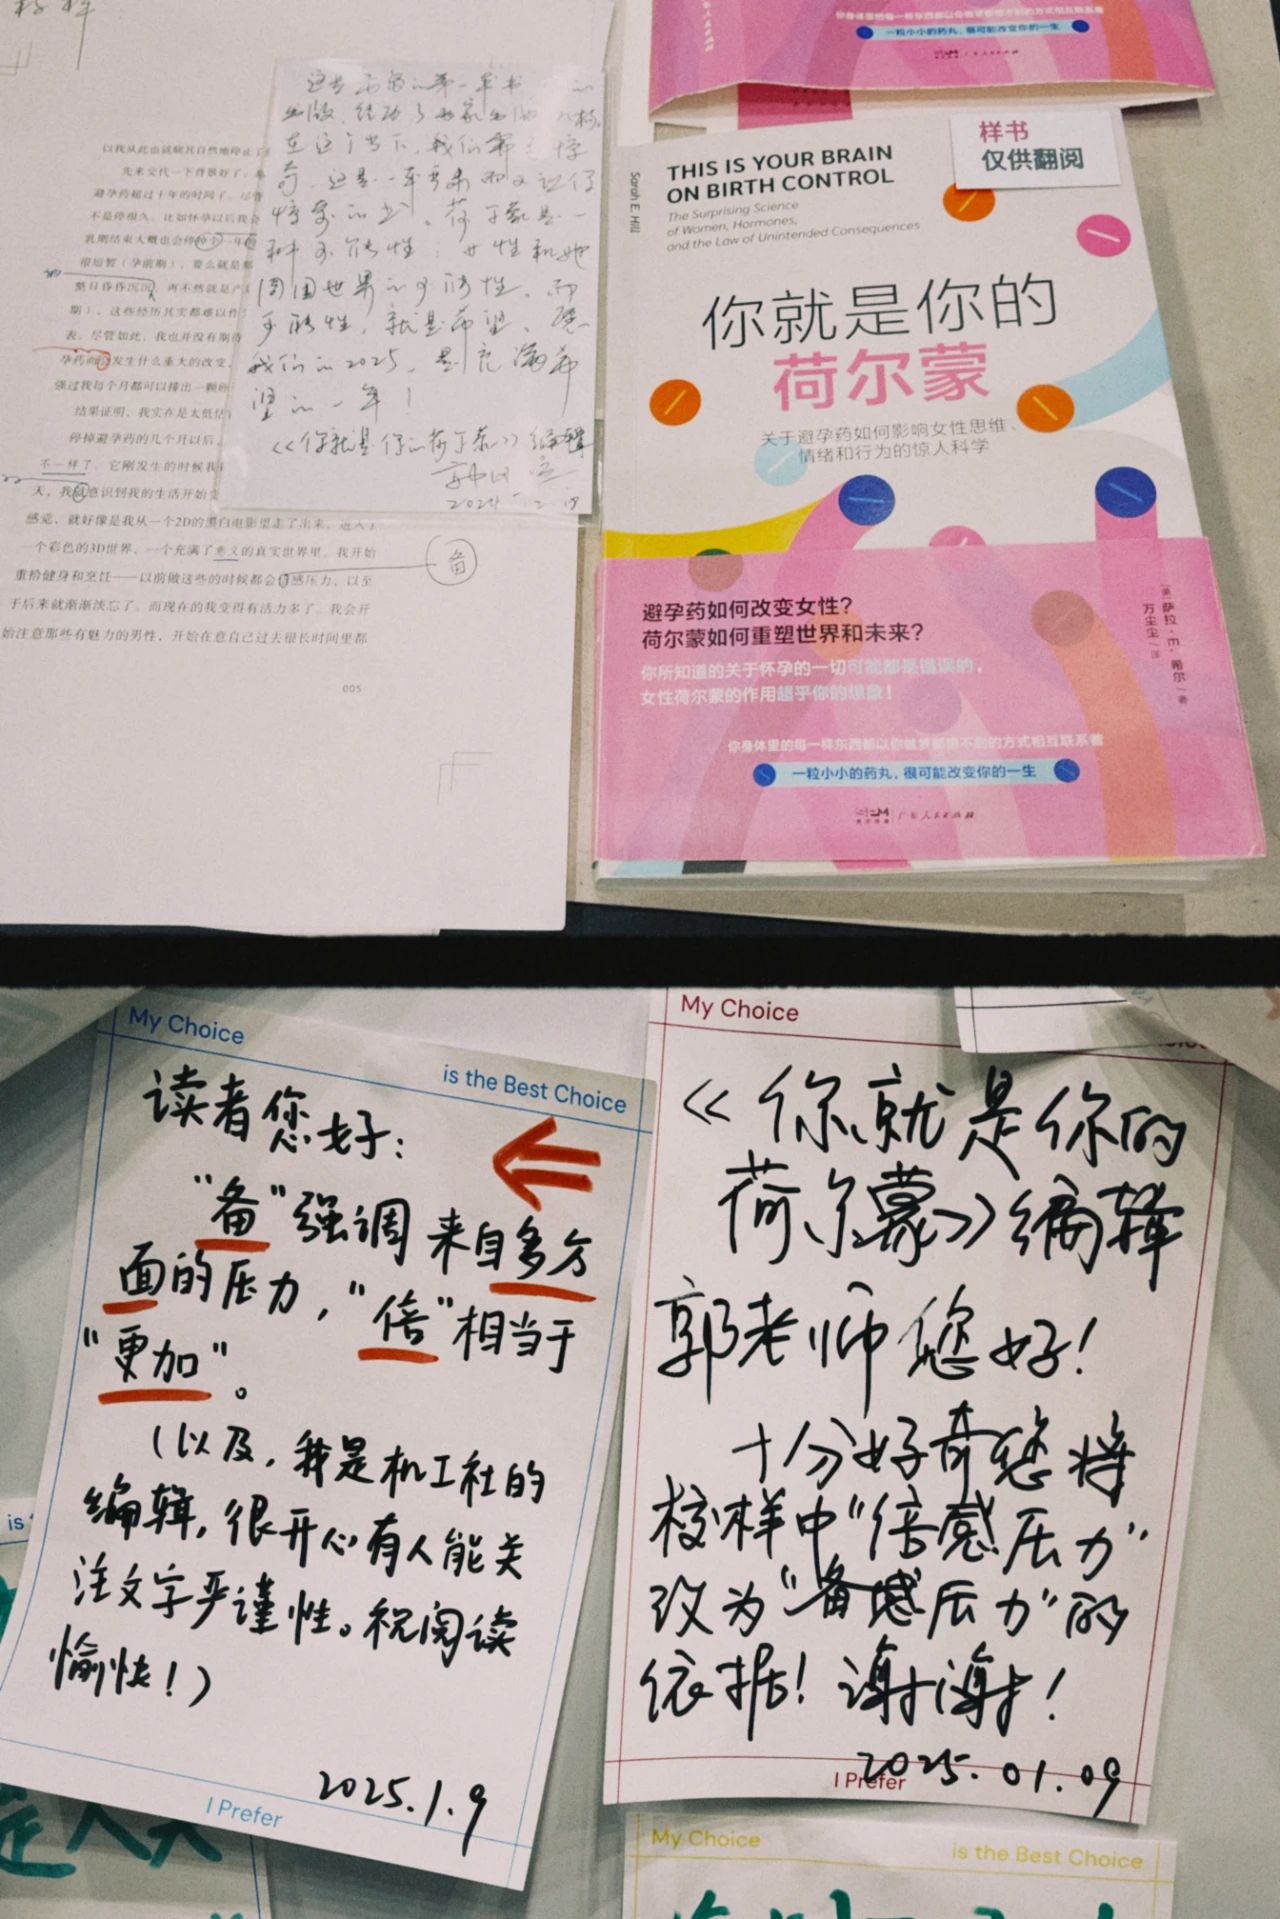 校样
以我从此也就顺其自然地停止了
先来交代一下背景好了。
避孕药超过十年的时间了。尽管
不是停很久。比如怀孕以后我会
乳期结束大概也会停
很短暂（孕前期），要么就是那
整日昏昏沉沉，再不然就是产
期），这些经历其实都难以作
表。尽管如此，我也并没有期待
孕药而会发生什么重大的改变，
强过我每个月都可以排出一颗的
结果证明，我实在是太低估
停掉避孕药的几个月以后，
不一样了。它刚发生的时候我
天，我就意识到我的生活开始变
感觉，就好像是我从一个2D的黑白电影里走了出来，进入了
一个彩色的3D世界，一个充满了意义的真实世界里。我开始
重拾健身和烹饪——以前做这些的时候都会倍感压力，以至
于后来就渐渐淡忘了。而现在的我变得有活力多了。我会开
始注意那些有魅力的男性，开始在意自己过去很长时间里都
备
005
在这个当下，我们都
荷尔蒙是一
种可能性：女性和她
周围世界的可能性。而
可能性，就是希望。愿
我们的2025，是充满希
望的一年！
《你就是你的荷尔蒙》编辑
你身体里的每一样东西都以你做梦都想不到的方式相互联系着
一粒小小的药丸，很可能改变你的一生
广东人民出版社
样书
仅供翻阅
Sarah E. Hill
THIS IS YOUR BRAIN
ON BIRTH CONTROL
The Surprising Science
of Women, Hormones,
and the Law of Unintended Consequences
你就是你的
荷尔蒙
关于避孕药如何影响女性思维、
情绪和行为的惊人科学
避孕药如何改变女性？
荷尔蒙如何重塑世界和未来？
你所知道的关于怀孕的一切可能都是错误的，
女性荷尔蒙的作用超乎你的想象！
[美] 萨拉·E·希尔 著
万尘尘 译
你身体里的每一样东西都以你做梦都想不到的方式相互联系着
一粒小小的药丸，很可能改变你的一生
广东人民出版社
My Choice
is the Best Choice
读者您好：
“备”强调来自多方
面的压力，“倍”相当于
“更加”。
（以及，我是机工社的
编辑，很开心有人能关
注文字严谨性。祝阅读
愉快！）
2025.1.9
I Prefer
My Choice
《你就是你的
荷尔蒙》编辑
郭老师您好！
十分好奇您将
校样中“倍感压力”
改为“备感压力”的
依据！谢谢！
2025.01.09
I Prefer
is
My Choice
is the Best Choice